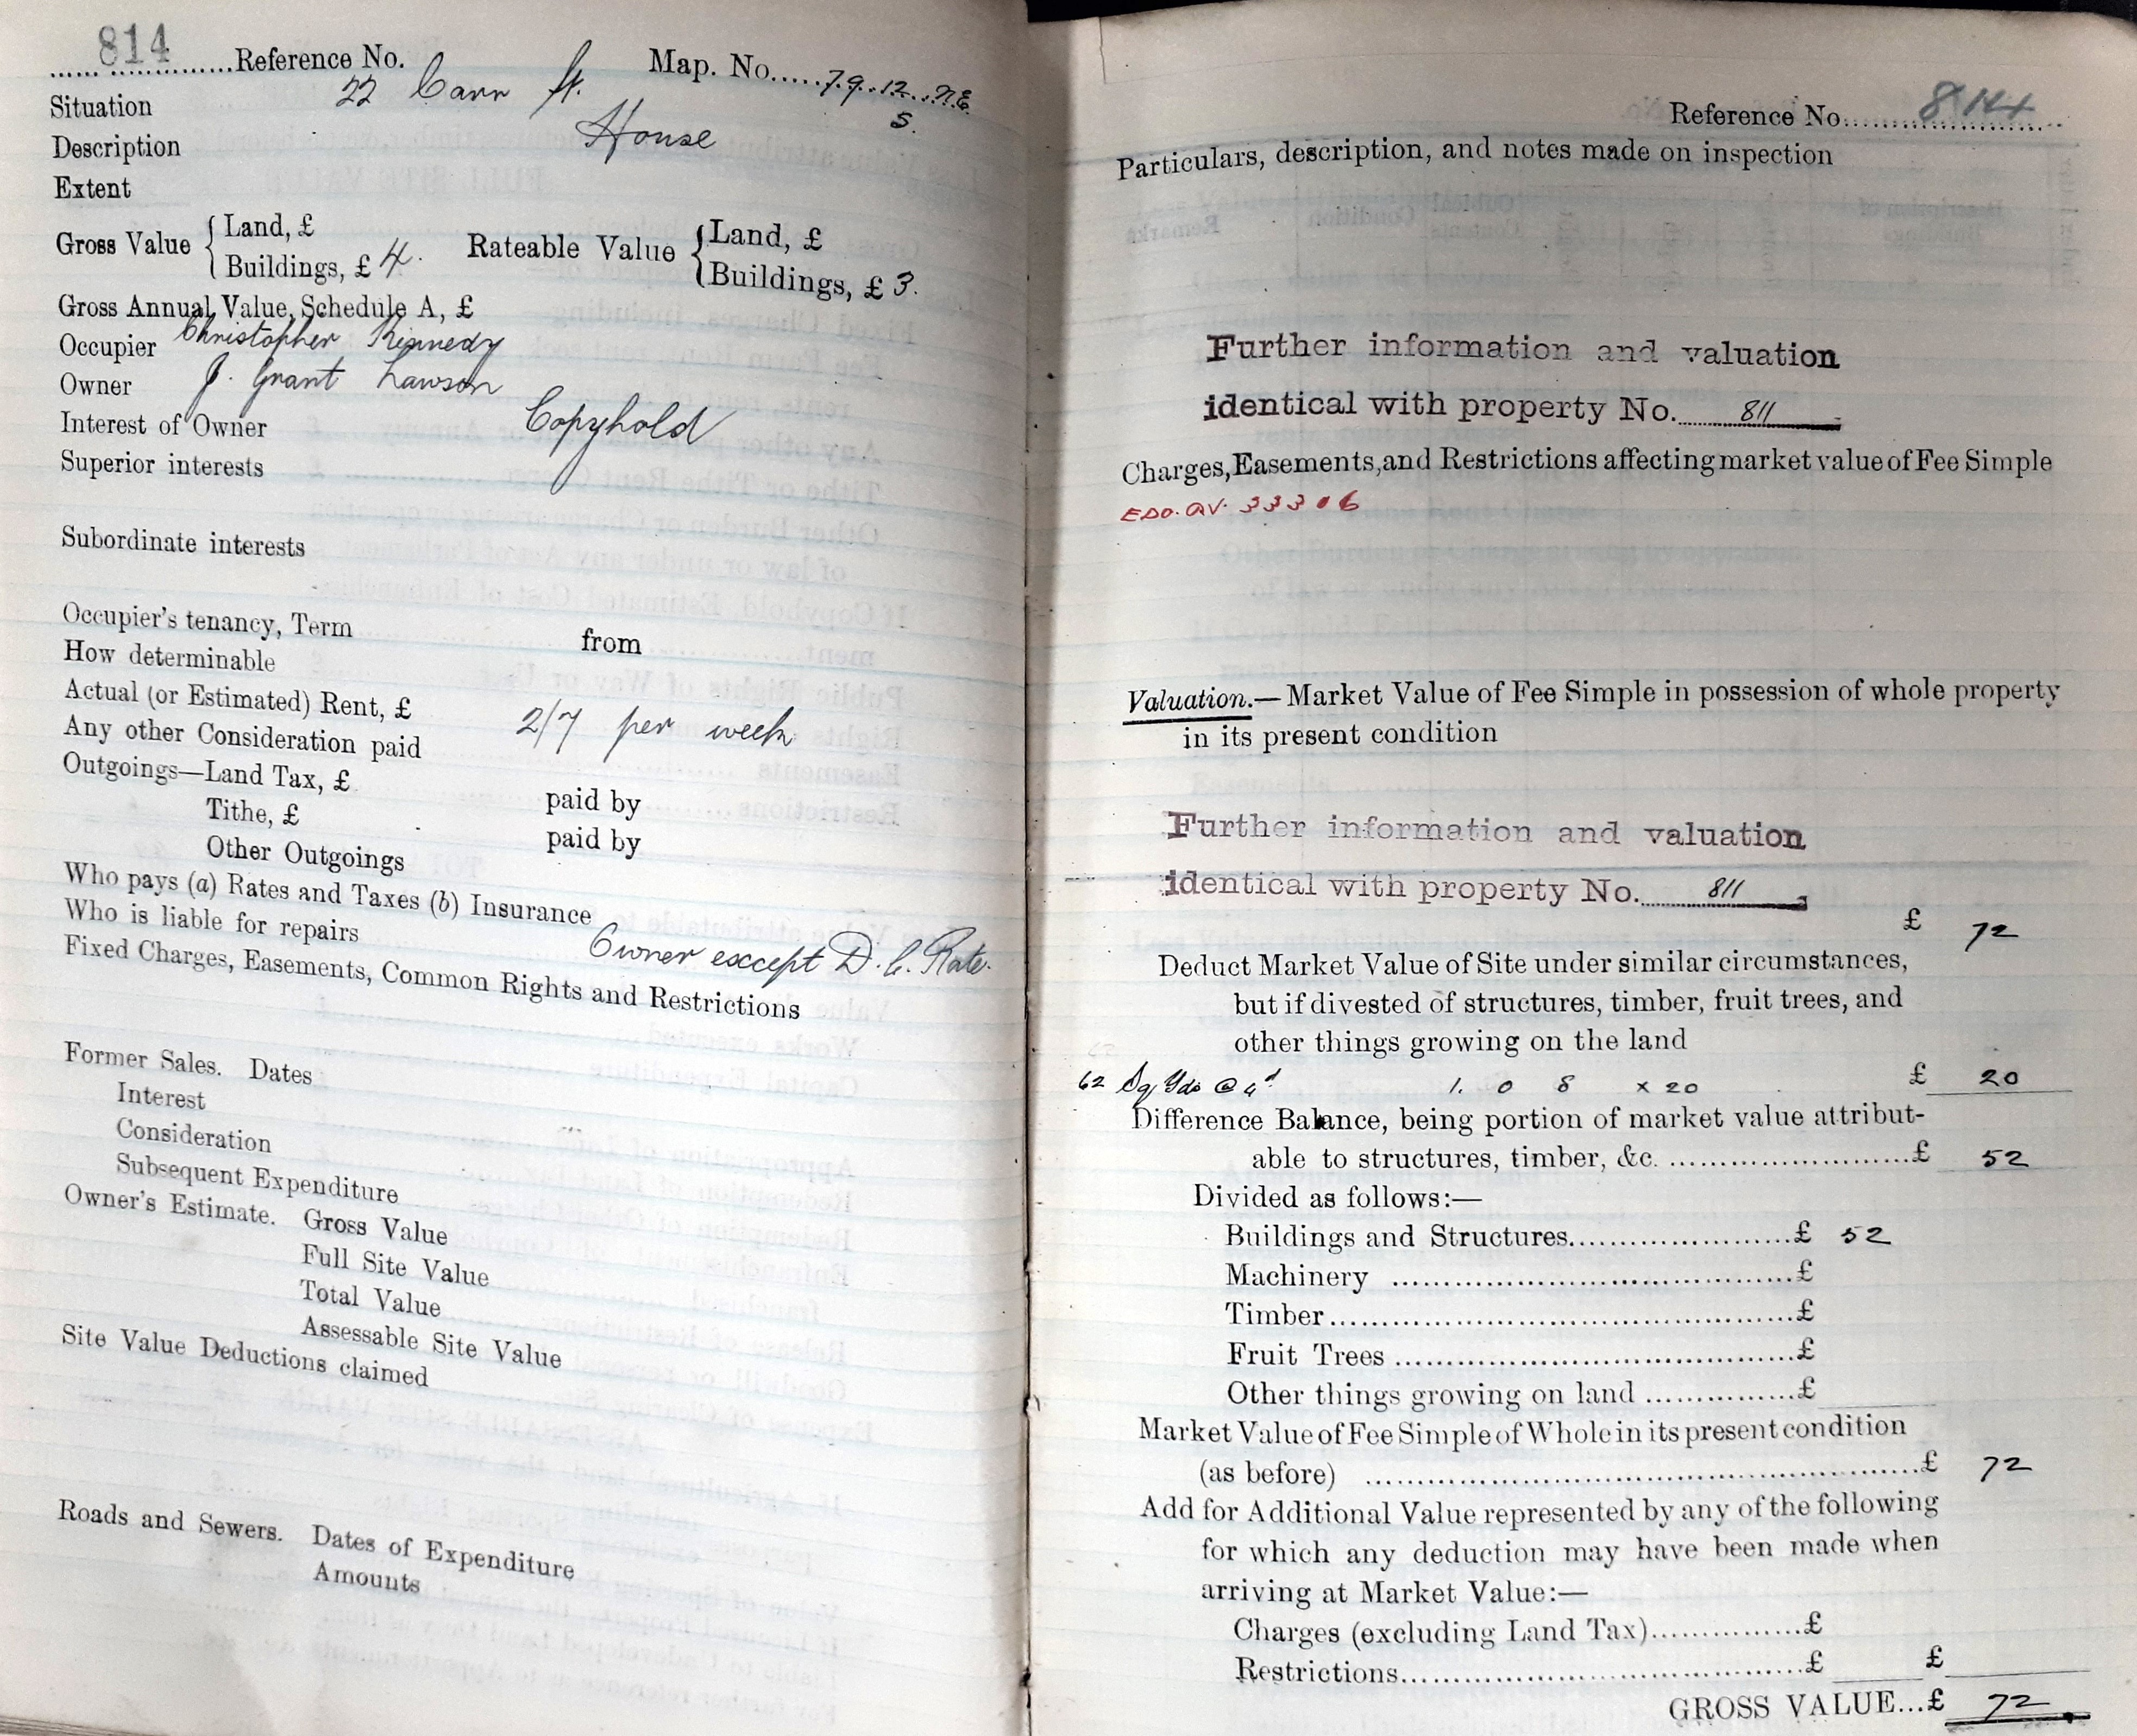 814
Reference No.
Map. No. 79.12.N.E.
5.
Situation 22 Carr St.
Description House
Extent
Gross Value { Land, £
Buildings, £ 4.
Rateable Value { Land, £
Buildings, £ 3.
Gross Annual Value, Schedule A, £
Occupier Christopher Kennedy
Owner J. Grant Lawson
Interest of Owner Copyhold
Superior interests
Subordinate interests
Occupier's tenancy, Term from
How determinable
Actual (or Estimated) Rent, £ 2/7 per week
Any other Consideration paid
Outgoings—Land Tax, £ paid by
Tithe, £ paid by
Other Outgoings
Who pays (a) Rates and Taxes (b) Insurance
Who is liable for repairs Owner except D. C. Rate.
Fixed Charges, Easements, Common Rights and Restrictions
Former Sales. Dates
Interest
Consideration
Subsequent Expenditure
Owner's Estimate. Gross Value
Full Site Value
Total Value
Assessable Site Value
Site Value Deductions claimed
Roads and Sewers. Dates of Expenditure
Amounts
Reference No. 814
Particulars, description, and notes made on inspection
Further information and valuation
identical with property No. 811
Charges, Easements, and Restrictions affecting market value of Fee Simple
EDO. QV. 33306
Valuation.—Market Value of Fee Simple in possession of whole property
in its present condition
Further information and valuation
identical with property No. 811
£ 72
Deduct Market Value of Site under similar circumstances,
but if divested of structures, timber, fruit trees, and
other things growing on the land
62 Sq Yds @ 4d 1. 0 8 x 20 £ 20
Difference Balance, being portion of market value attribut-
able to structures, timber, &c. £ 52
Divided as follows:—
Buildings and Structures £ 52
Machinery £
Timber £
Fruit Trees £
Other things growing on land £
Market Value of Fee Simple of Whole in its present condition
(as before) £ 72
Add for Additional Value represented by any of the following
for which any deduction may have been made when
arriving at Market Value:—
Charges (excluding Land Tax) £
Restrictions £ £
GROSS VALUE...£ 72